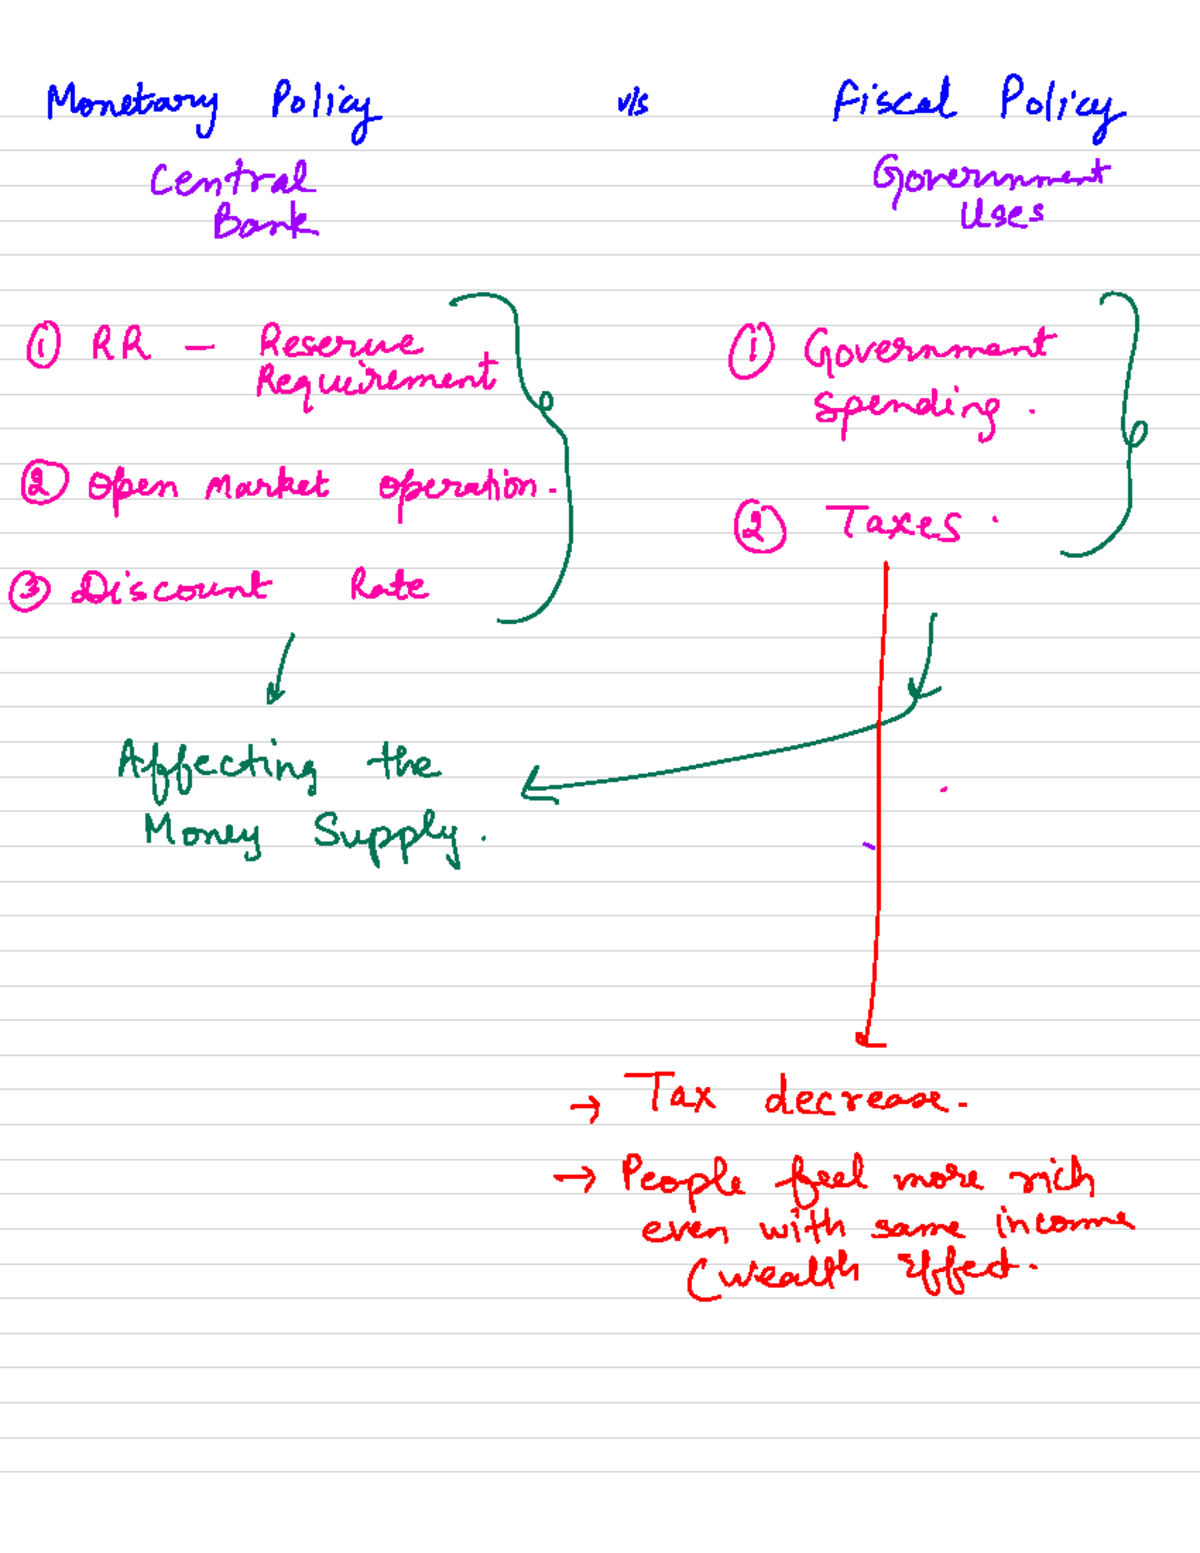 Monetary Policy v/s Fiscal Policy
Central
Bank
Government
Uses
① RR – Reserve
Requirement
② Open Market Operation.
③ Discount Rate
① Government
Spending.
② Taxes.
Affecting the
Money Supply.
→ Tax decrease.
→ People feel more rich
even with same income
(Wealth Effect.